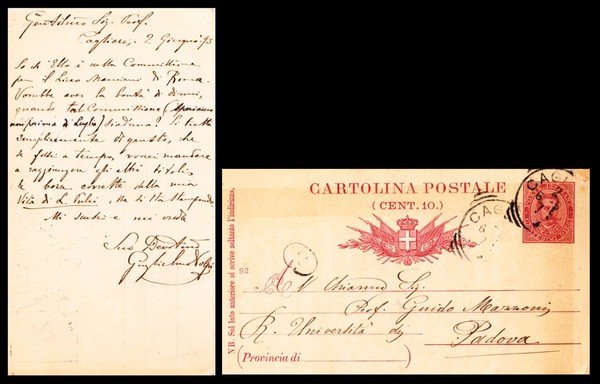 Gentilmo Sig. Prof.
Cagliari, 2 Giugno 93
So ch'Ella è nella Commissione
per il Liceo Mamiani di Roma.
Vorrebbe aver la bontà di dirmi,
quando tal Commissione (speriamo
non prima di Luglio) siederà? Si tratta
semplicemente di questo, che
se fossi a tempo, vorrei mandare
a raggiungere gli altri titoli,
le bozze corrette della mia
Vita di L. Pulci, che si sta stampando.
Mi scusi e mi creda
Suo Devotmo
Guglielmo Volpi
CARTOLINA POSTALE
(CENT. 10.)
CAG
CAG
N B. Sul lato anteriore si scrive soltanto l'indirizzo.
92
All Chiarmo Sig.
Prof. Guido Mazzoni
R. Università di
Padova
(Provincia di )